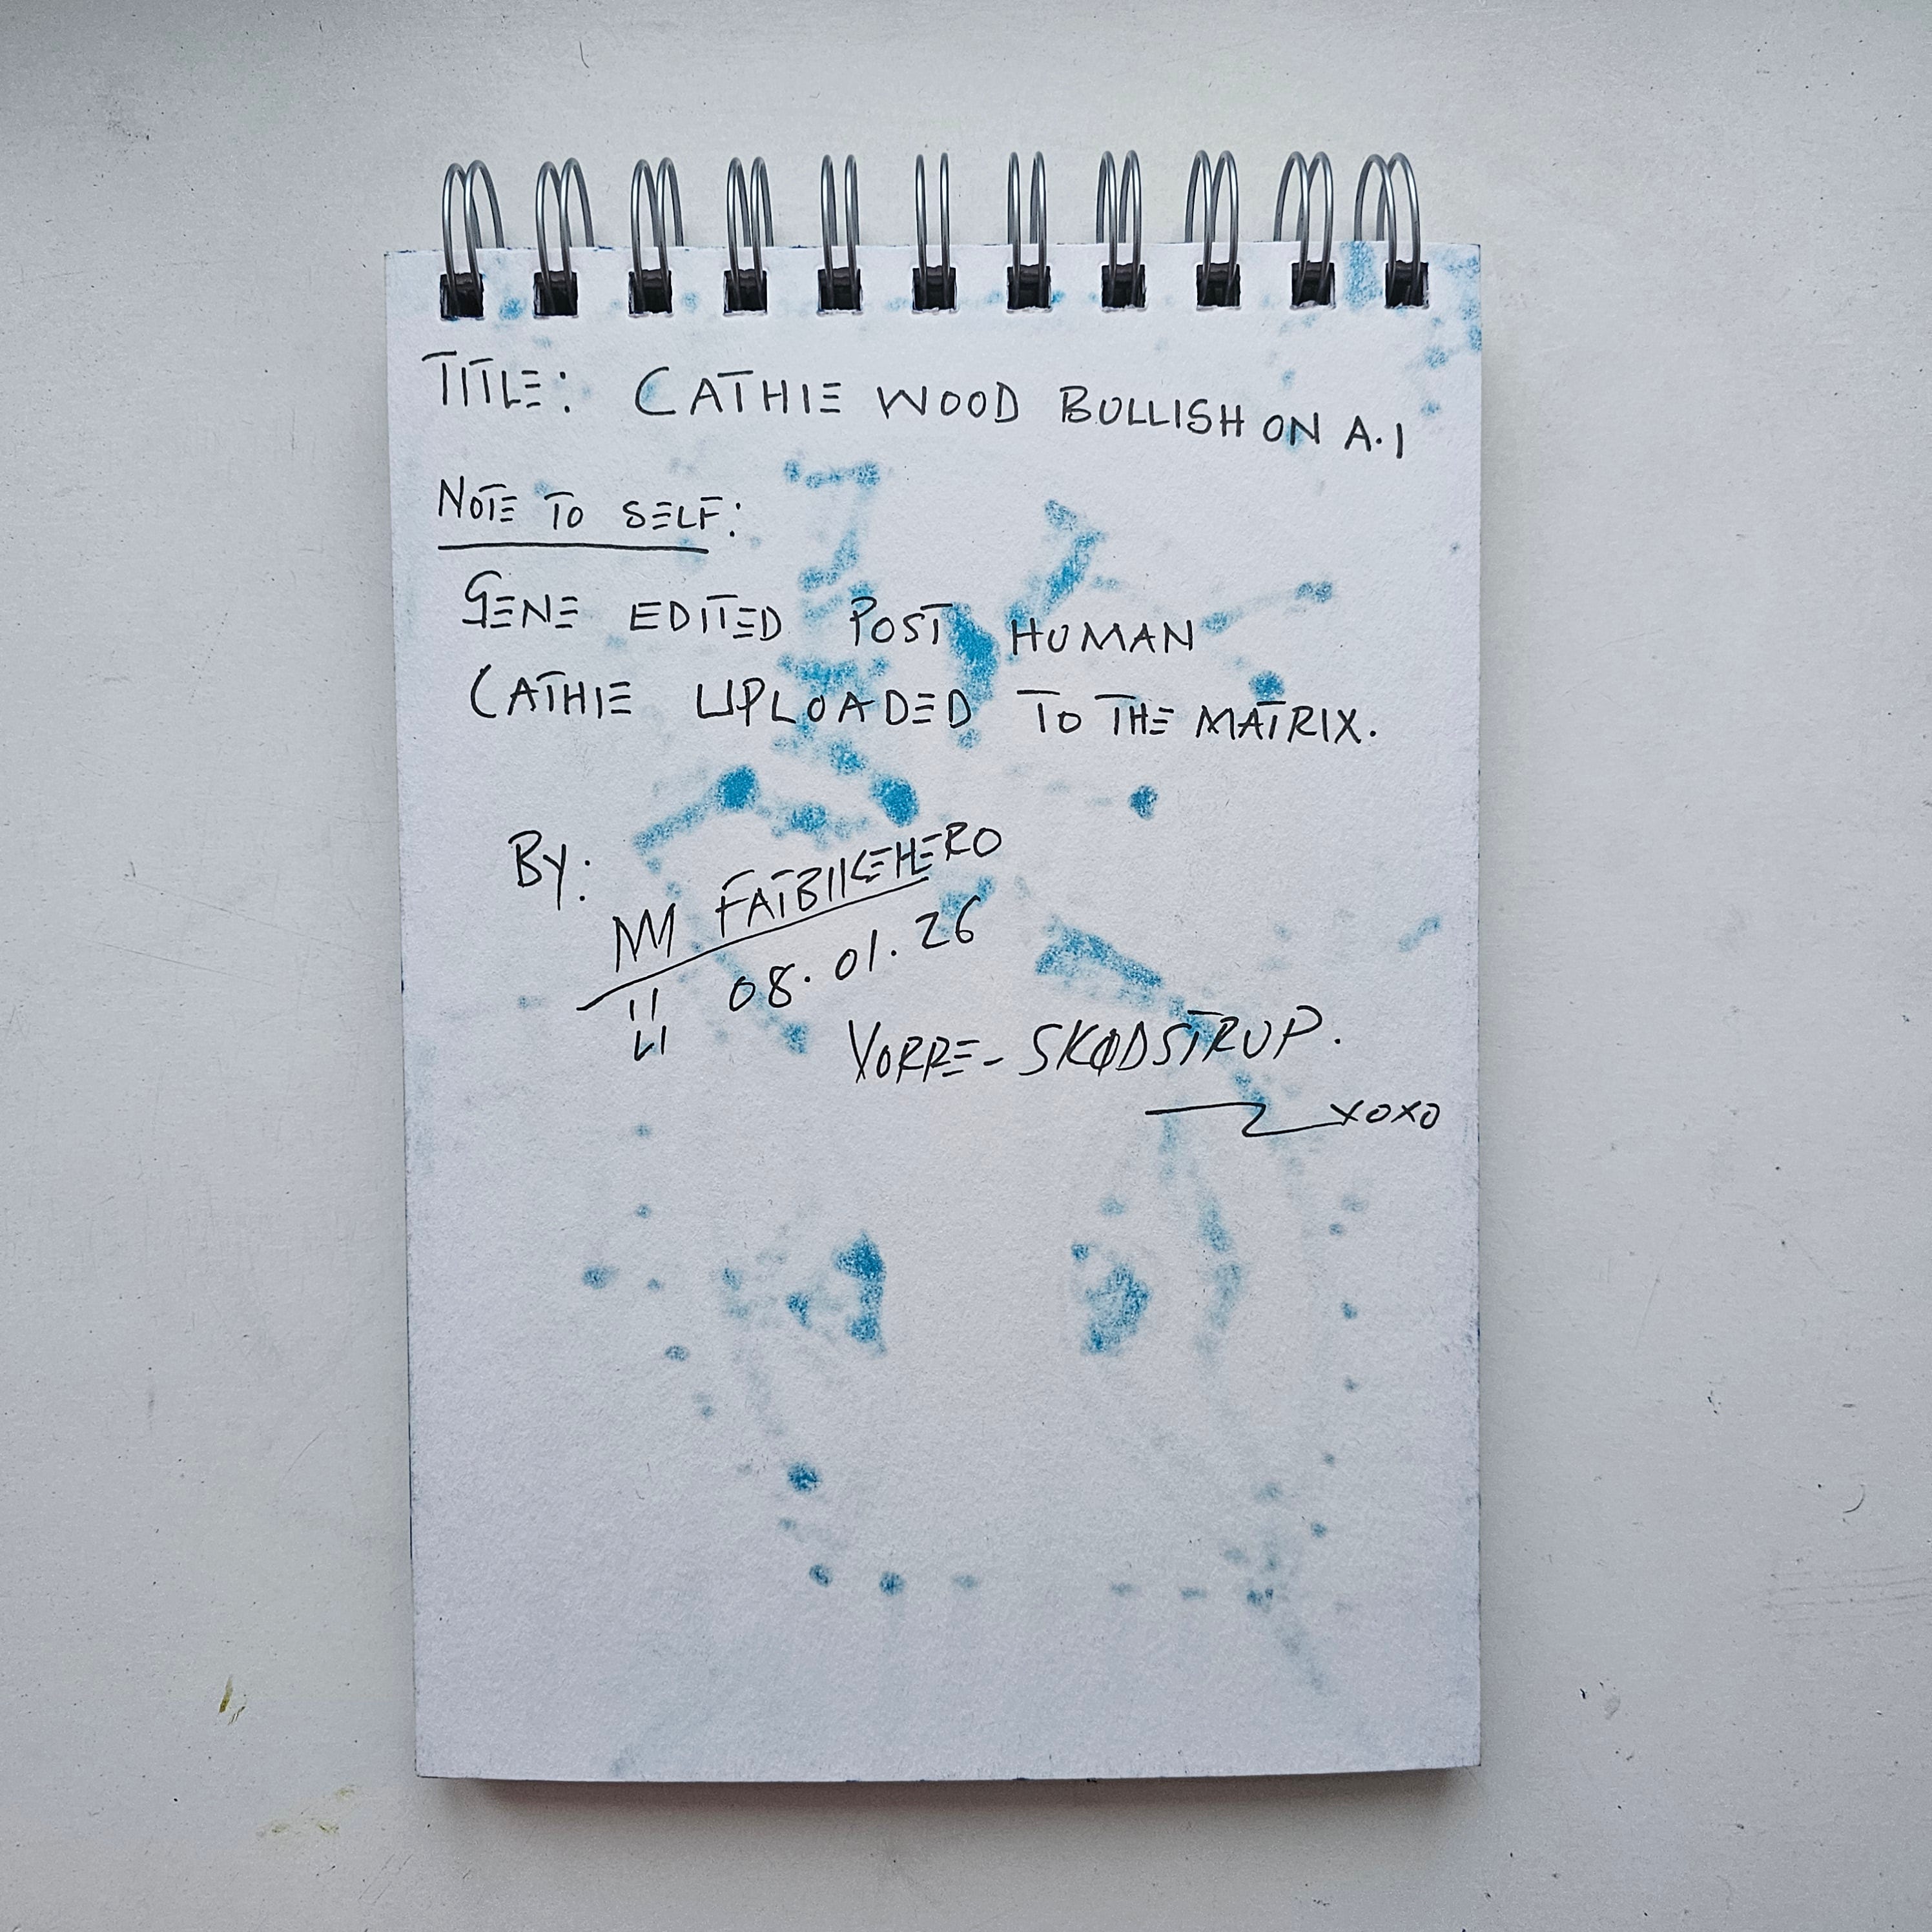 TITLE: CATHIE WOOD BULLISH ON A.I
NOTE TO SELF:
GENE EDITED POST HUMAN
CATHIE UPLOADED TO THE MATRIX.
BY:
FATBIKEHERO
08.01.26
VORRE - SKØDSTRUP.
XOXO